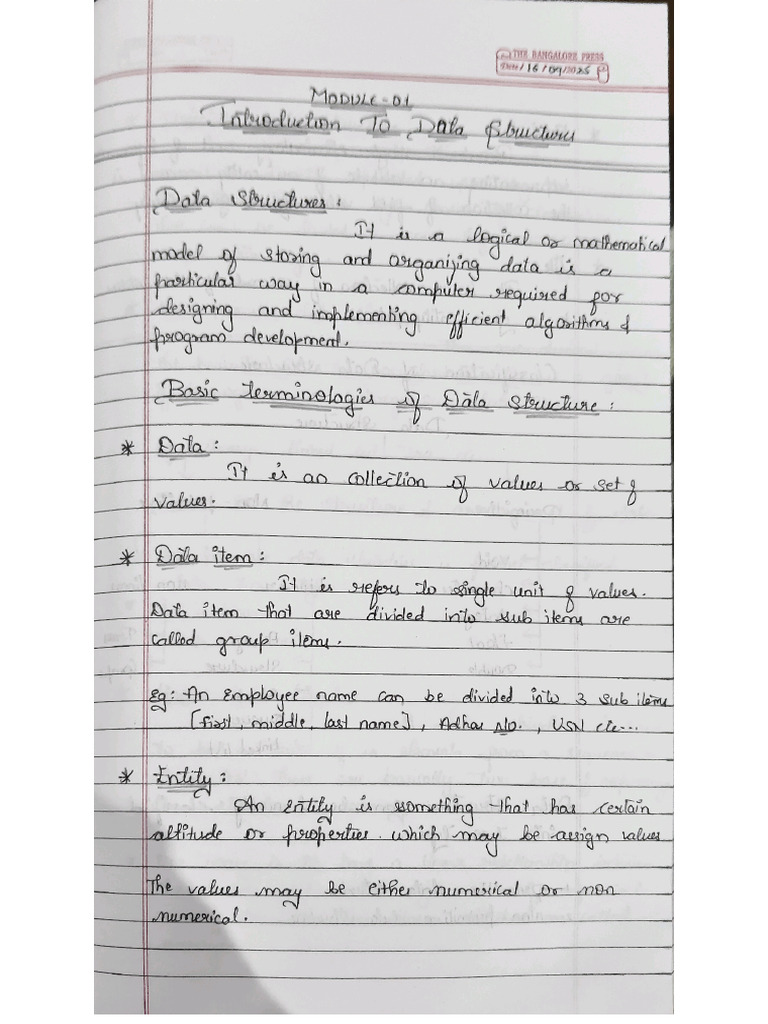 THE BANGALORE PRESS
Date / 16 / 09 / 2025
MODULE-01
Introduction To Data Structures
Data Structures :
It is a logical or mathematical
model of storing and organizing data is a
particular way in a computer required for
designing and implementing efficient algorithms &
program development.
Basic terminologies of Data structure :
* Data :
It is an collection of values or set of
values.
* Data item :
It is refers to single unit of values.
Data item that are divided into sub items are
called group items.
Eg: An employee name can be divided into 3 sub items
[first, middle, last name], Adhar No., USN etc...
* Entity :
An Entity is something that has certain
attitude or properties which may be assign values
The values may be either numerical or non
numerical.